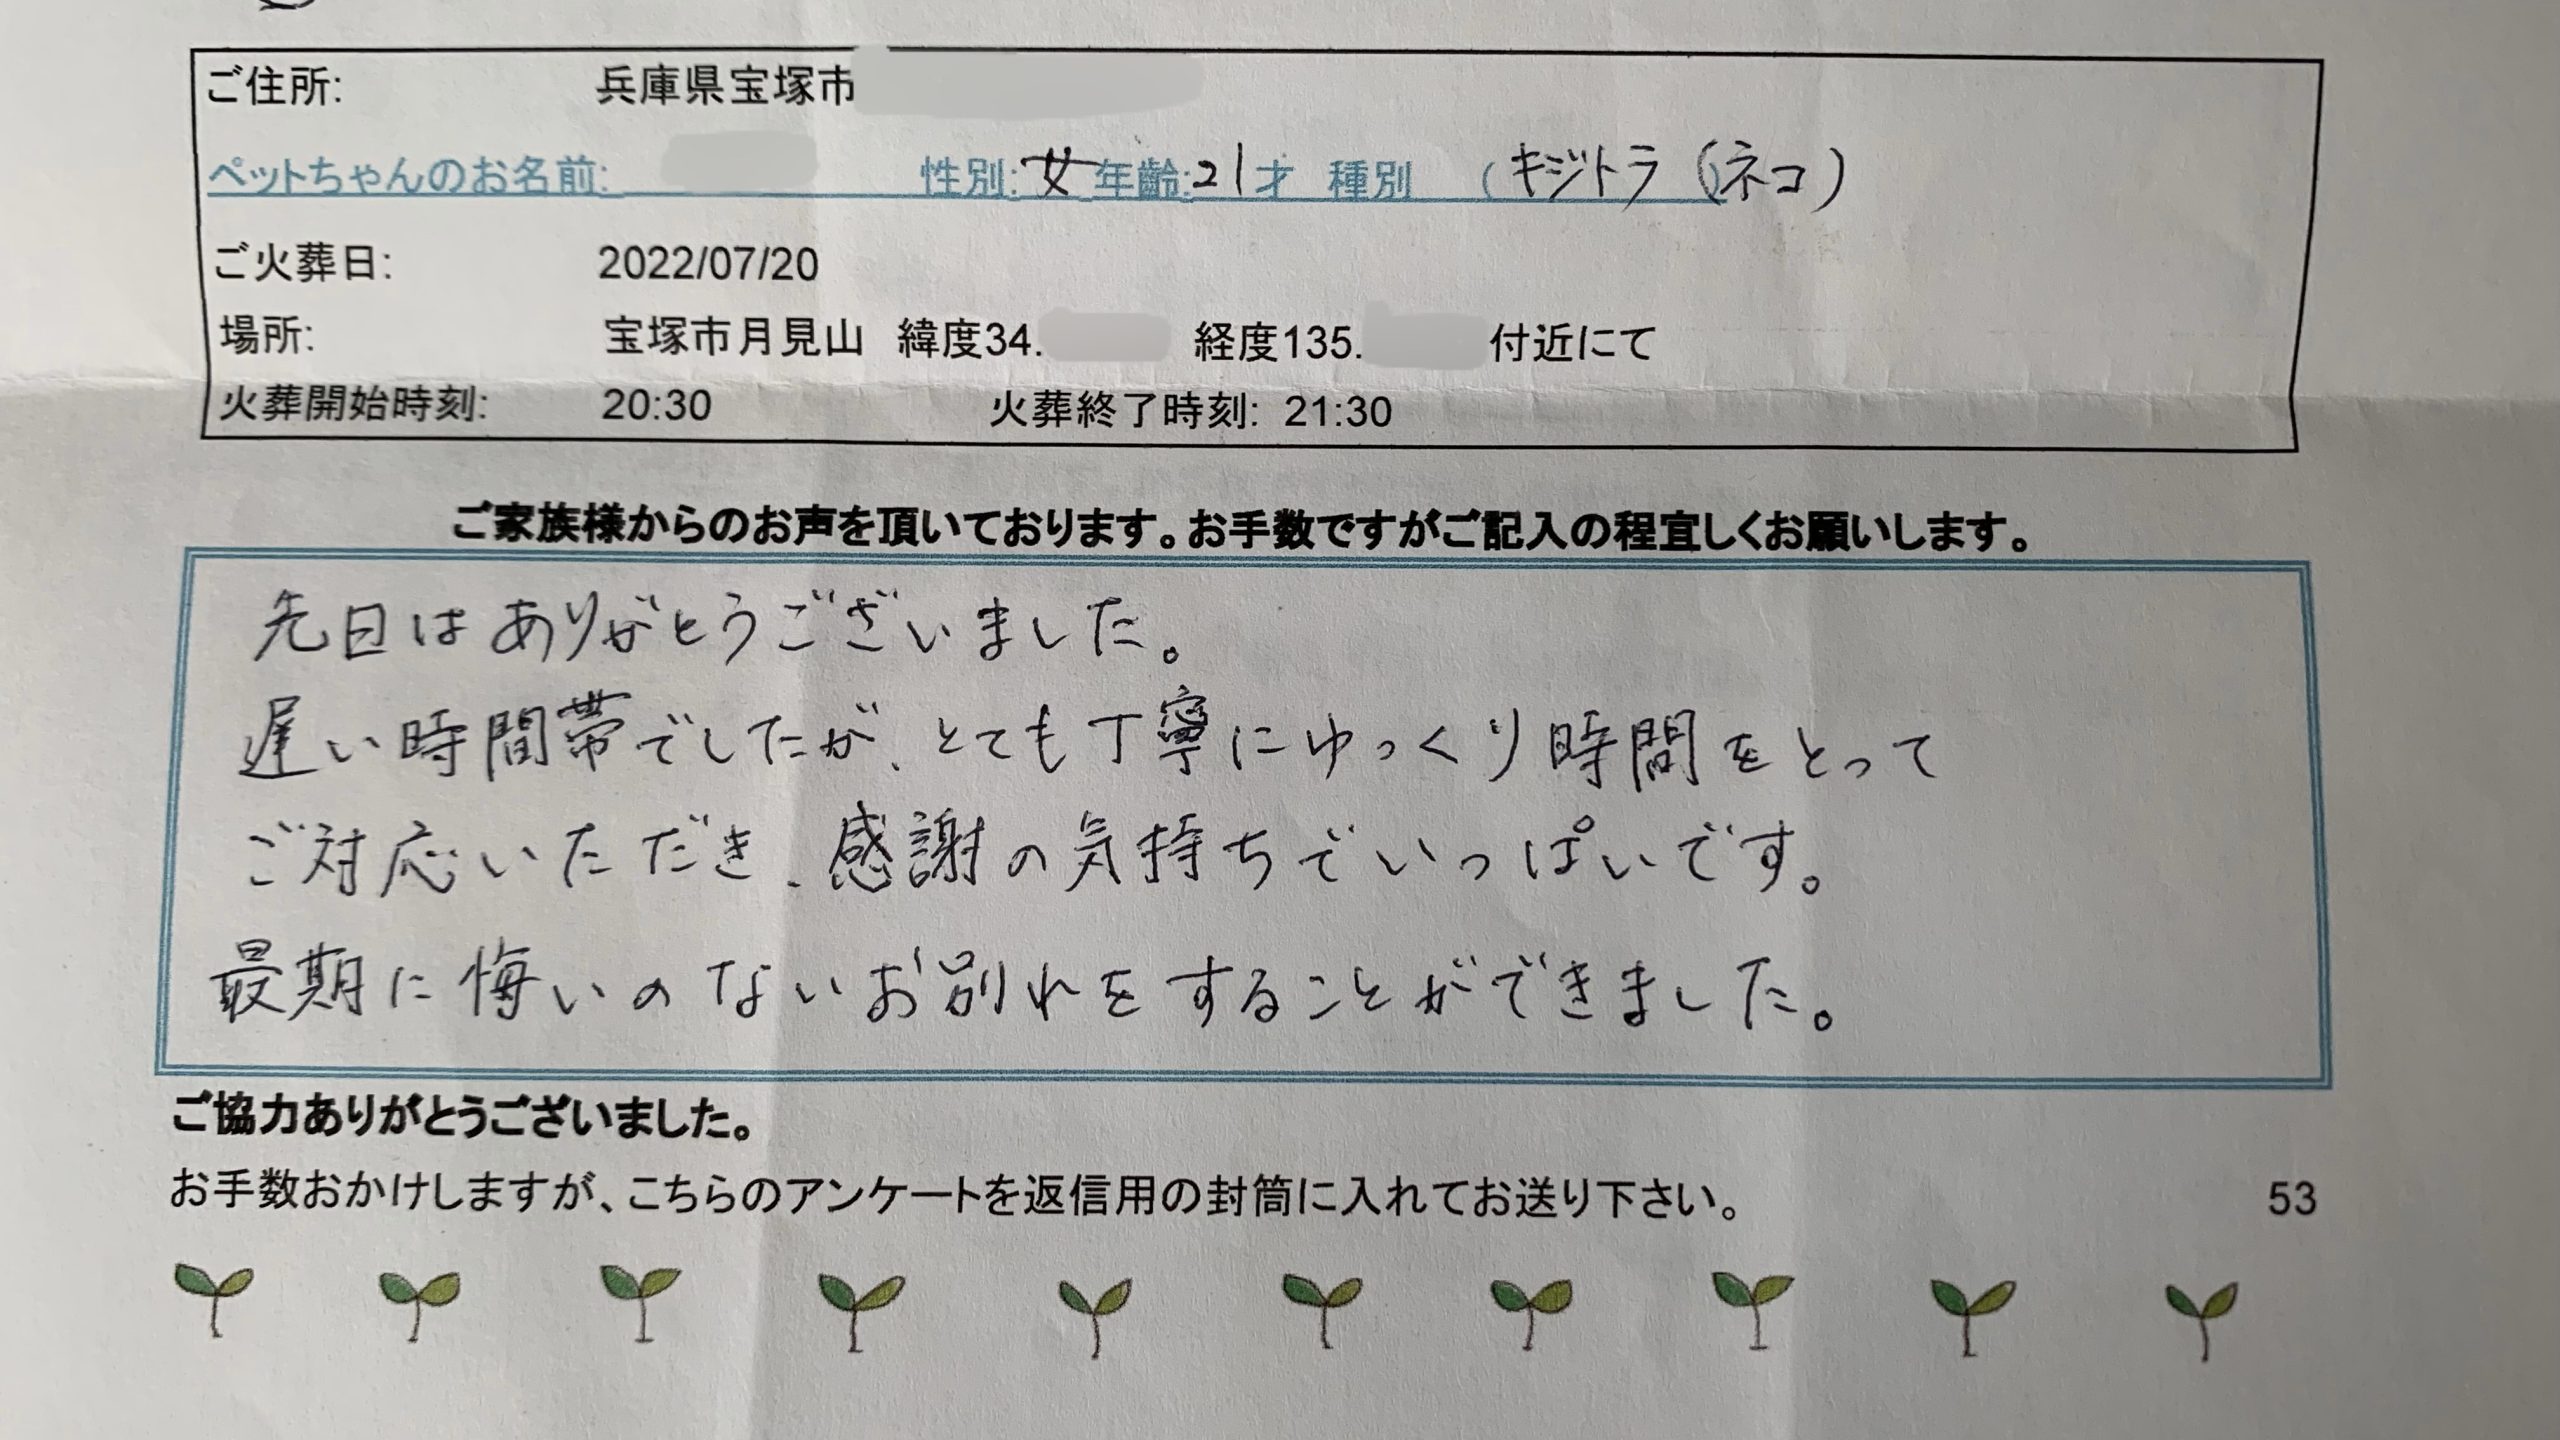 ご住所: 兵庫県宝塚市
ペットちゃんのお名前: 性別: 女 年齢: 21才 種別 (キジトラ(ネコ)
ご火葬日: 2022/07/20
場所: 宝塚市月見山 緯度34. 経度135. 付近にて
火葬開始時刻: 20:30 火葬終了時刻: 21:30
ご家族様からのお声を頂いております。お手数ですがご記入の程宜しくお願いします。
先日はありがとうございました。
遅い時間帯でしたが、とても丁寧にゆっくり時間をとって
ご対応いただき、感謝の気持ちでいっぱいです。
最期に悔いのないお別れをすることができました。
ご協力ありがとうございました。
お手数おかけしますが、こちらのアンケートを返信用の封筒に入れてお送り下さい。 53